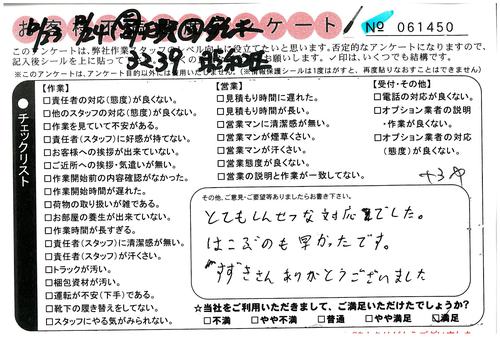 お客様不 アンケート
№ 061450
このアンケートは、弊社作業スタッフのレベル向上に役立てたいと思います。否定的なアンケートになりますので、
記入後シールを上に貼って お願いします。✓印は、いくつでも結構です。
※このアンケートは、アンケート目的以外には使用いたしません。(※情報保護シールは1度はがすと、再度貼りなおすことはできません)
3239
チェックリスト
【作業】
□責任者の対応(態度)が良くない。
□他のスタッフの対応(態度)が良くない。
□作業を見ていて不安がある。
□責任者(スタッフ)に好感が持てない。
□お客様への挨拶が出来ていない。
□ご近所への挨拶・気遣いが無い。
□作業開始前の内容確認がなかった。
□作業開始時間が遅れた。
□荷物の取り扱いが雑である。
□お部屋の養生が出来ていない。
□作業時間が長すぎる。
□責任者(スタッフ)に清潔感が無い。
□責任者(スタッフ)が汗くさい。
□トラックが汚い。
□梱包資材が汚い。
□運転が不安(下手)である。
□靴下の履き替えをしてない。
□スタッフにやる気がみられない。
【営業】
□見積もり時間に遅れた。
□見積もり時間が長い。
□営業マンに清潔感が無い。
□営業マンが煙草くさい。
□営業マンが汗くさい。
□営業態度が良くない。
□営業の説明と作業が一致してない。
【受付・その他】
□電話の対応が良くない。
□オプション業者の説明
・作業が良くない。
□オプション業者の対応
(態度)が良くない。
その他、ご意見・ご要望等ありましたらお書き下さい。
とてもしんせつな対応でした。
はこぶのも早かったです。
すずきさん ありがとうございました
☆当社をご利用いただきまして、ご満足いただけたでしょうか?
□不満 □やや不満 □普通 □やや満足 ☑満足